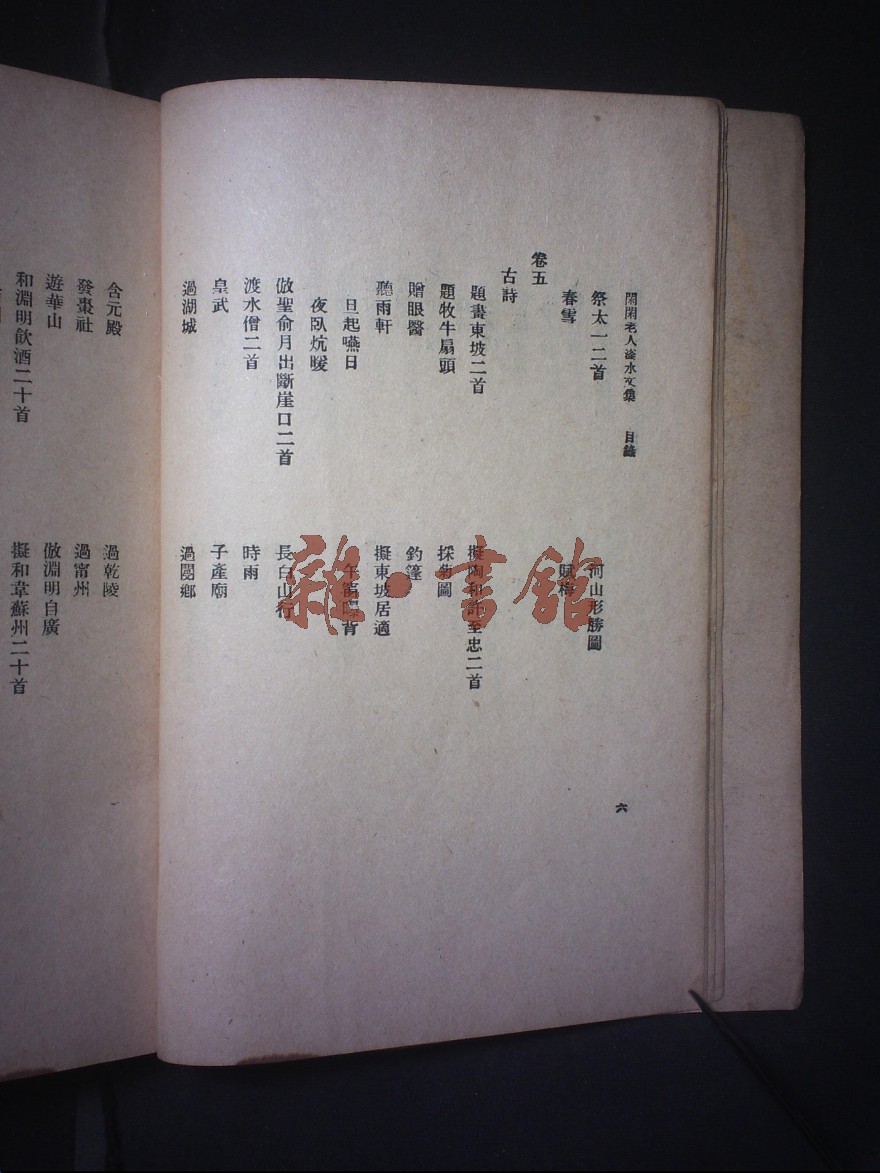 閑閑老人滏水文集 目錄
六
祭太一二首 河山形勝圖
春雪 賦梅
卷五
古詩
題畫東坡二首 擬陶和許至忠二首
題牧牛扇頭 採菊圖
贈眼醫 釣篷
聽雨軒 擬東坡居適
旦起嚥日 午窗曝背
夜臥炕暖
倣聖俞月出斷崖口二首 長白山行
渡水僧二首 時雨
皇武 子產廟
過湖城 過閿鄉
含元殿 過乾陵
發棗社 過甯州
遊華山 倣淵明自廣
和淵明飲酒二十首 擬和韋蘇州二十首
雜·書館